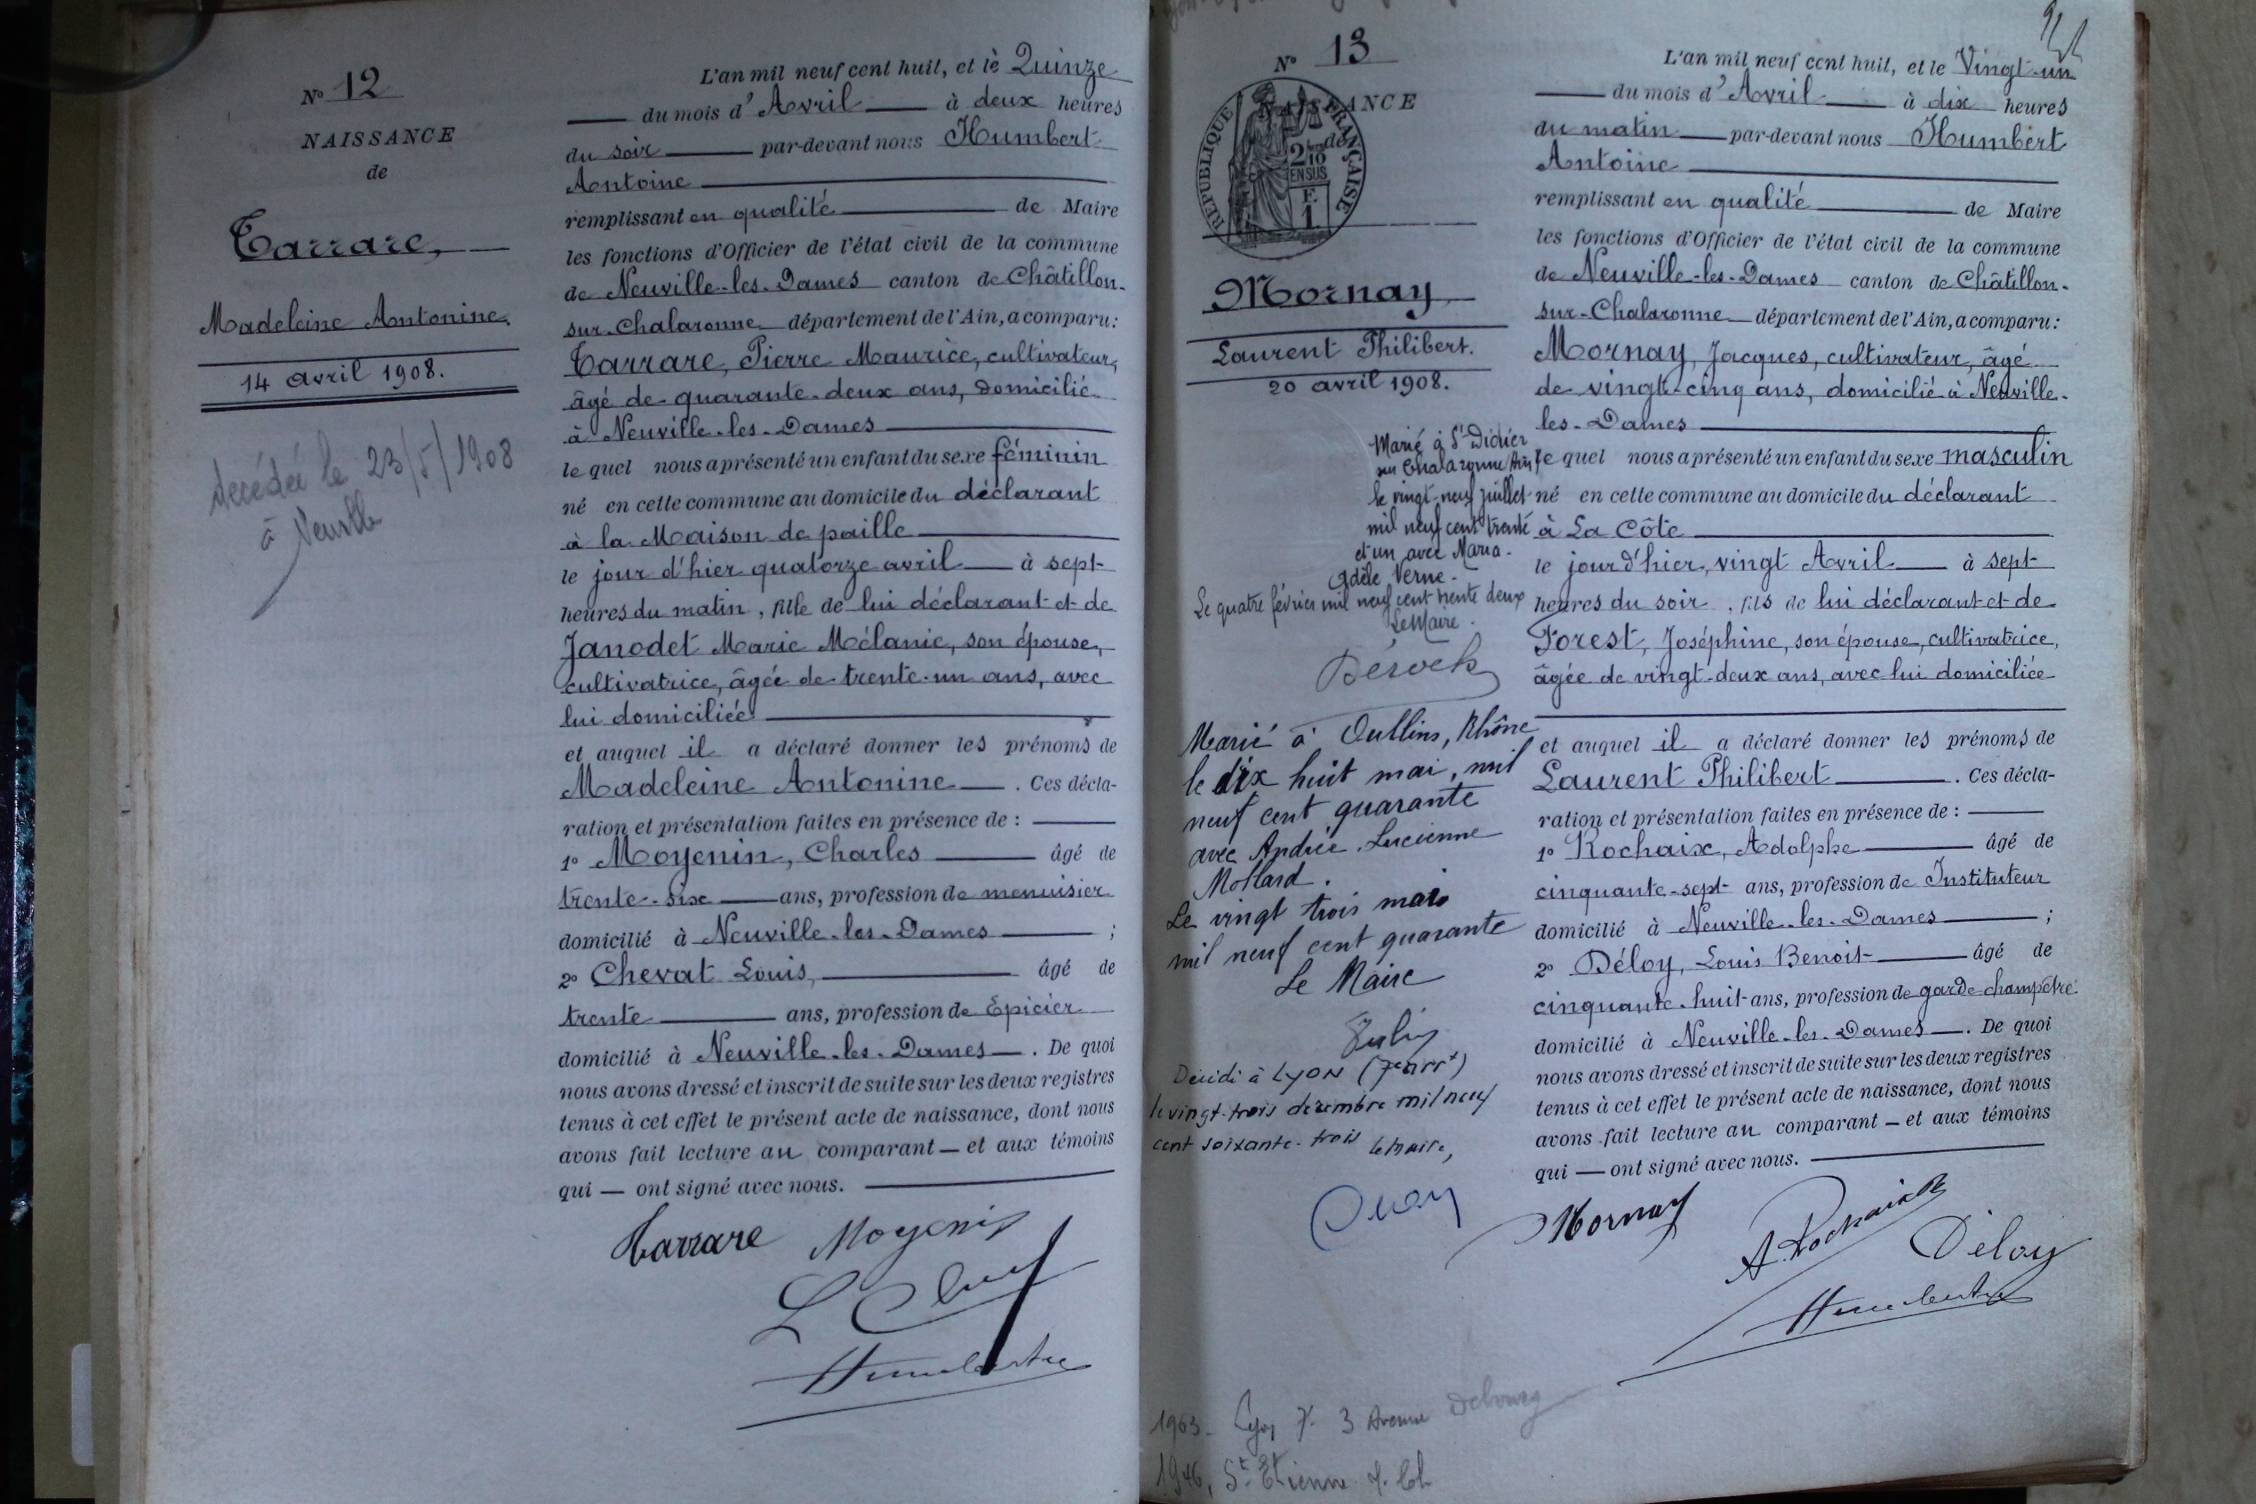 N° 12
NAISSANCE
de
Tarrare,
Madeleine Antonine,
14 avril 1908.
décédée le 23/5/1908
à Neuville
L'an mil neuf cent huit, et le Quinze
du mois d'Avril à deux heures
du soir par-devant nous Humbert
Antoine
remplissant en qualité de Maire
les fonctions d'Officier de l'état civil de la commune
de Neuville-les-Dames canton de Châtillon-
sur-Chalaronne département de l'Ain, a comparu:
Tarrare, Pierre Maurice, cultivateur,
âgé de quarante-deux ans, domicilié
à Neuville-les-Dames
le quel nous a présenté un enfant du sexe féminin
né en cette commune au domicile du déclarant
à la Maison de paille
le jour d'hier quatorze avril à sept
heures du matin, fille de lui déclarant et de
Janodet Marie Mélanie, son épouse,
cultivatrice, âgée de trente-un ans, avec
lui domiciliée
et auquel il a déclaré donner les prénoms de
Madeleine Antonine. Ces décla-
ration et présentation faites en présence de :
1° Moyenin, Charles âgé de
trente-six ans, profession de menuisier
domicilié à Neuville-les-Dames ;
2° Chevat Louis, âgé de
trente ans, profession de Epicier
domicilié à Neuville-les-Dames. De quoi
nous avons dressé et inscrit de suite sur les deux registres
tenus à cet effet le présent acte de naissance, dont nous
avons fait lecture au comparant — et aux témoins
qui — ont signé avec nous.
Tarrare Moyenin
L Chevat
Humbert
N° 13
NAISSANCE
de
RÉPUBLIQUE FRANÇAISE
2/10
EN SUS
F.
1
Mornay
Laurent Philibert.
20 avril 1908.
Marié à St Didier
sur Chalaronne Ain
le vingt-neuf juillet
mil neuf cent trente
et un avec Maria
Adèle Verne.
Le quatre février mil neuf cent trente deux
Le Maire.
Marié à Oullins, Rhône
le dix huit mai, mil
neuf cent quarante
avec Andrée, Lucienne
Mollard.
Le vingt trois mai
mil neuf cent quarante
Le Maire
Décédé à LYON (7e arrt)
le vingt-trois décembre mil neuf
cent soixante-trois Le Maire,
L'an mil neuf cent huit, et le Vingt-un
du mois d'Avril à dix heures
du matin par-devant nous Humbert
Antoine
remplissant en qualité de Maire
les fonctions d'Officier de l'état civil de la commune
de Neuville-les-Dames canton de Châtillon-
sur-Chalaronne département de l'Ain, a comparu:
Mornay, Jacques, cultivateur, âgé
de vingt-cinq ans, domicilié à Neuville-
les-Dames
le quel nous a présenté un enfant du sexe masculin
né en cette commune au domicile du déclarant
à La Côte
le jour d'hier, vingt Avril à sept
heures du soir, fils de lui déclarant et de
Forest, Joséphine, son épouse, cultivatrice,
âgée de vingt-deux ans, avec lui domiciliée
et auquel il a déclaré donner les prénoms de
Laurent Philibert. Ces décla-
ration et présentation faites en présence de :
1° Rochaix, Adolphe âgé de
cinquante-sept ans, profession de Instituteur
domicilié à Neuville-les-Dames ;
2° Déloy, Louis Benoit âgé de
cinquante-huit ans, profession de garde champêtre
domicilié à Neuville-les-Dames. De quoi
nous avons dressé et inscrit de suite sur les deux registres
tenus à cet effet le présent acte de naissance, dont nous
avons fait lecture au comparant — et aux témoins
qui — ont signé avec nous.
Mornay A. Rochaix
Déloy
Humbert
1963 - Lyon 7e 3 Avenue Debourg
1946, St Etienne s. Ch